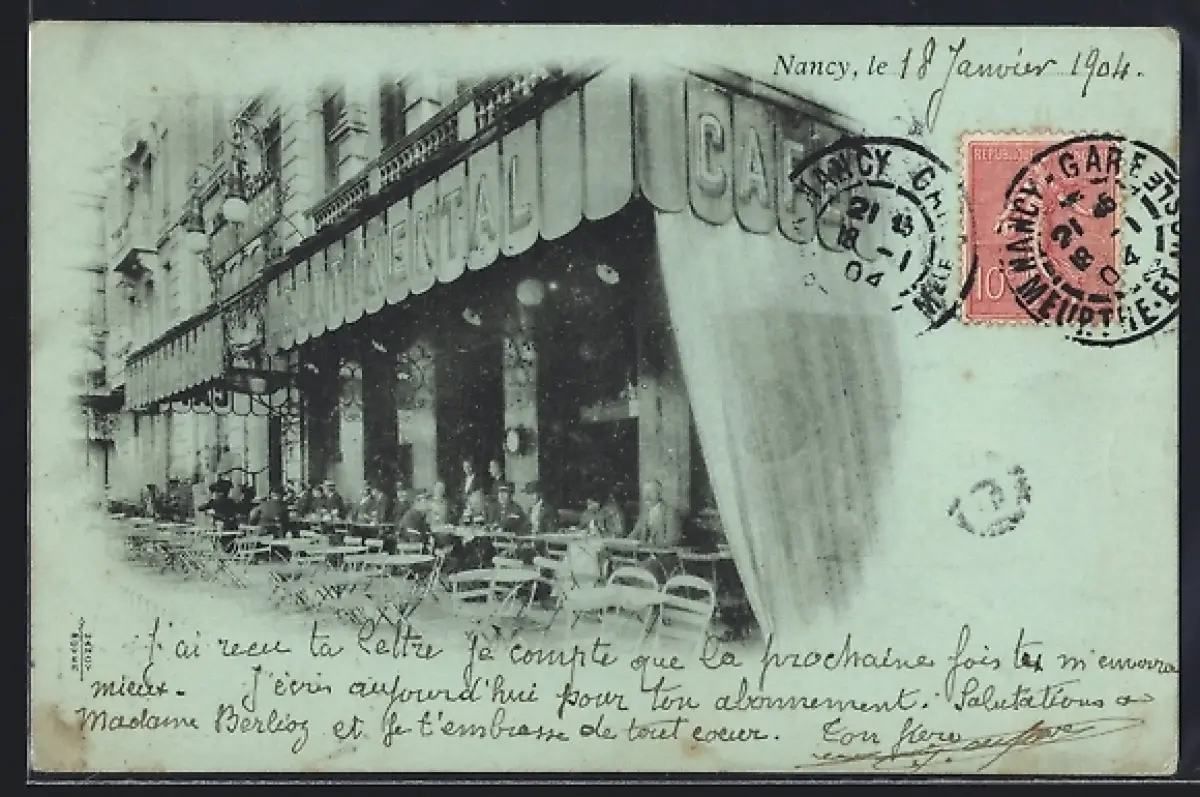 Nancy, le 18 Janvier 1904.
CONTINENTAL
CAFÉ
REPUBLIQUE
10
NANCY-GARE
21
18-1
04
NANCY-GARE
21
18-1
04
MEURTHE-ET-MOSELLE
J'ai reçu ta lettre Je compte que la prochaine fois tu m'enverra
mieux. J'écris aujourd'hui pour ton abonnement. Salutations a
Madame Berlioz et Je t'embrasse de tout cœur. Ton frère